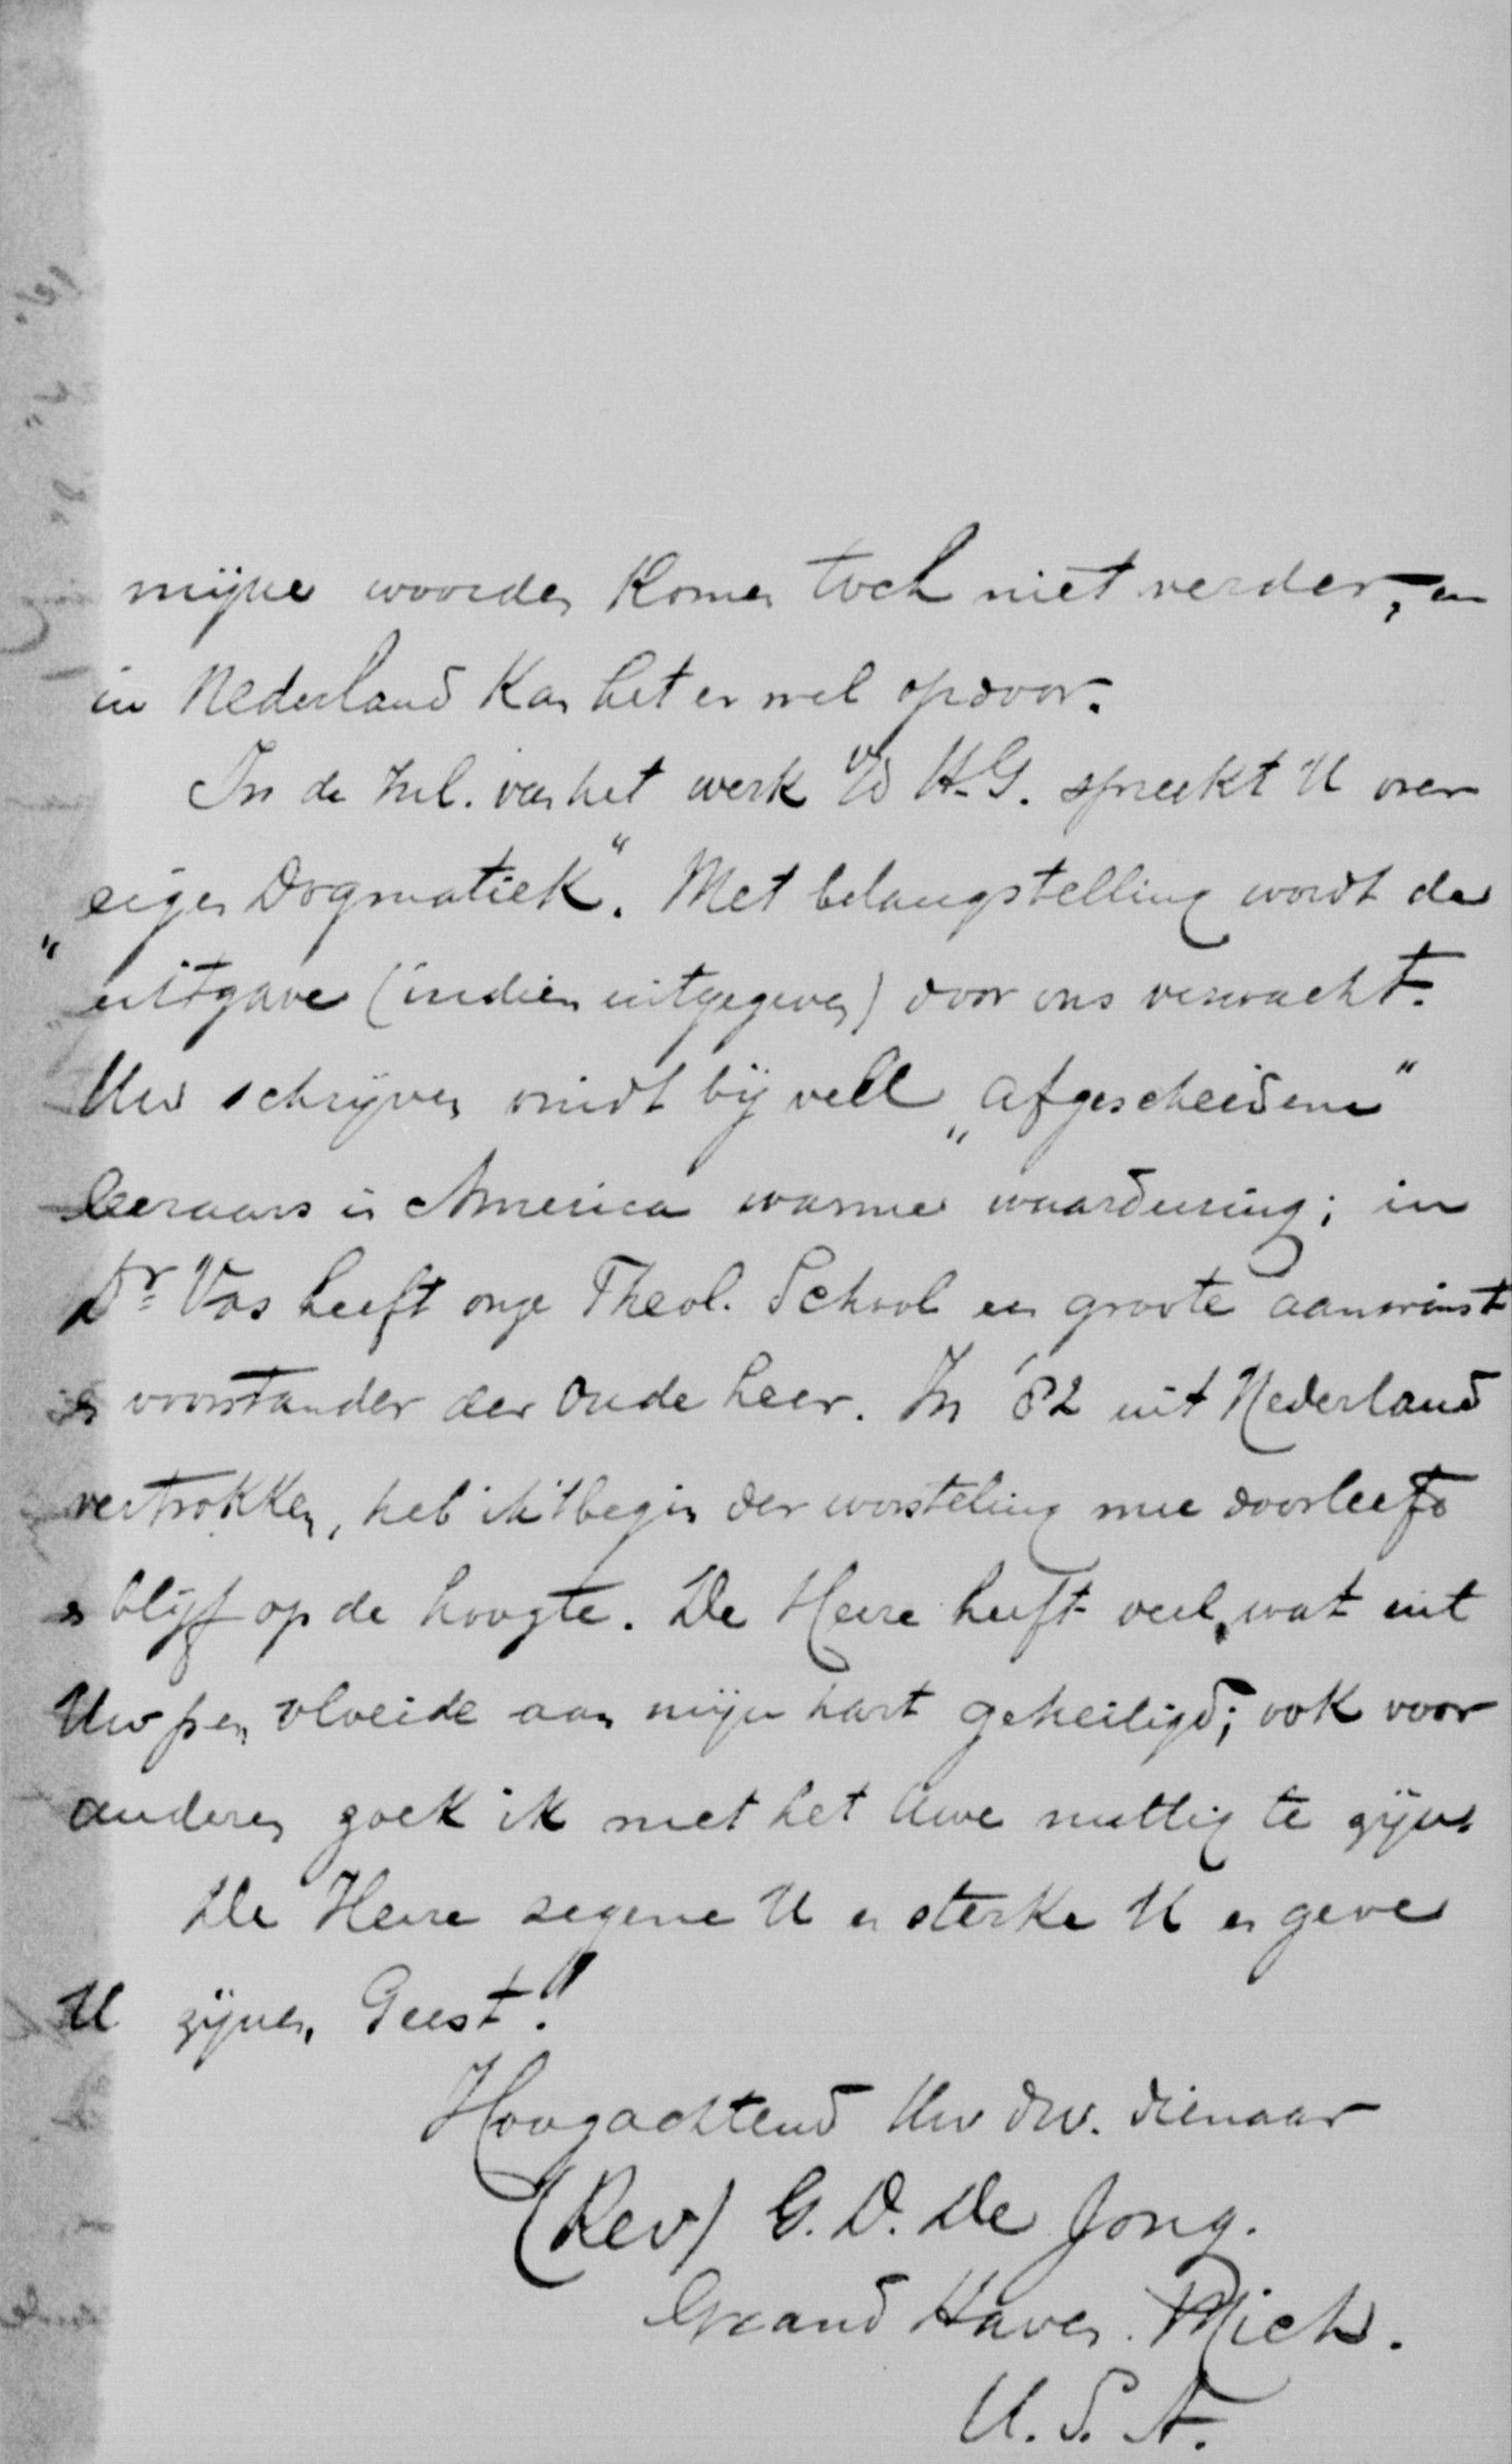 mijne woorden komen toch niet verder, en
in Nederland kan het er wel opdoor.
In de Inl. van het werk v/d H.G. spreekt U over
eigen Dogmatiek". Met belangstelling wordt de
uitgave (indien uitgegeven) door ons verwacht.
Uw schrijven vindt bij veel „afgescheidene"
leeraars in America warme waardeering; in
Dr. Vos heeft onze Theol. School een groote aanwinst
en voorstander der oude leer. In '82 uit Nederland
vertrokken, heb ik 't begin der worsteling mee doorleefd
en blijf op de hoogte. De Heere heeft veel, wat uit
Uw pen vloeide aan mijn hart geheiligd; ook voor
anderen zoek ik met het Uwe nuttig te zijn.
De Heere zegene U en sterke U en geve
U zijnen Geest!
Hoogachtend Uw dw. dienaar
(Rev) G. D. De Jong.
Grand Haven. Mich.
U. S. A.